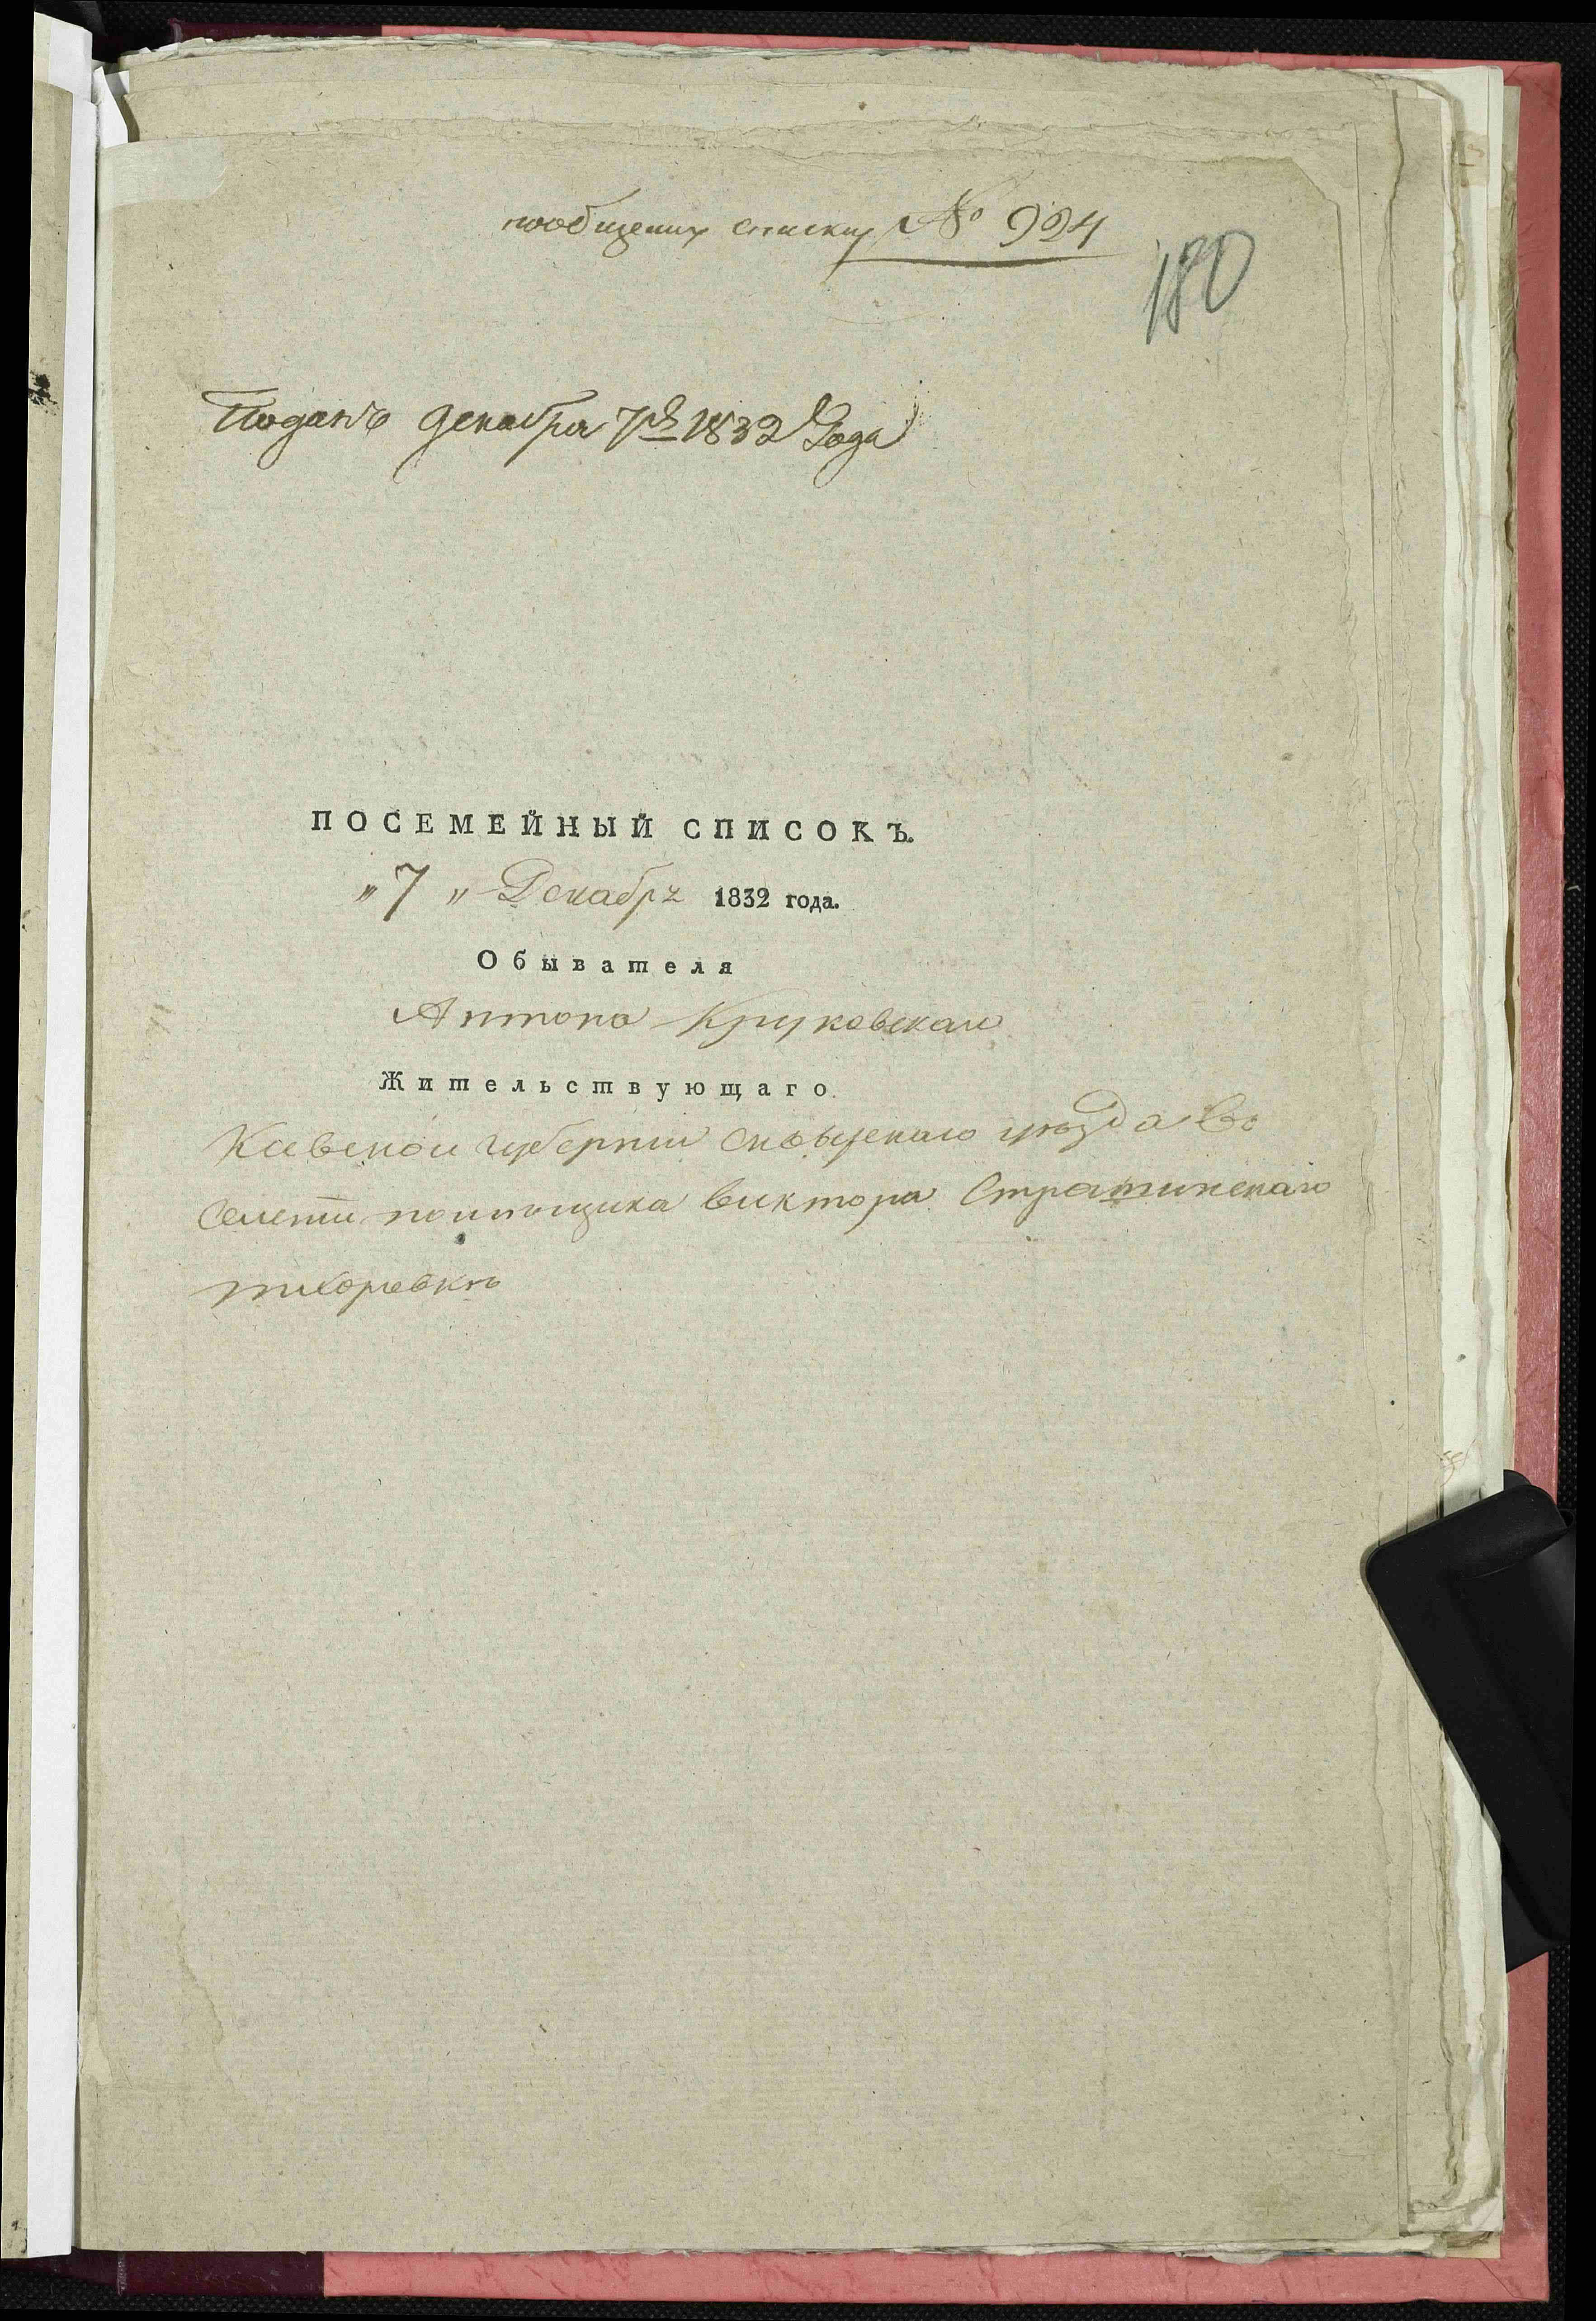 пообщему списку № 924
180
Поданъ декабря 7го 1832 Года
ПОСЕМЕЙНЫЙ СПИСОКЪ.
„ 7 „ Декабря 1832 года.
Обывателя
Антона Круковскаго
Жительствующаго
Киевской губернии Сквырскаго уѣзда Въ
Селении помищика Виктора